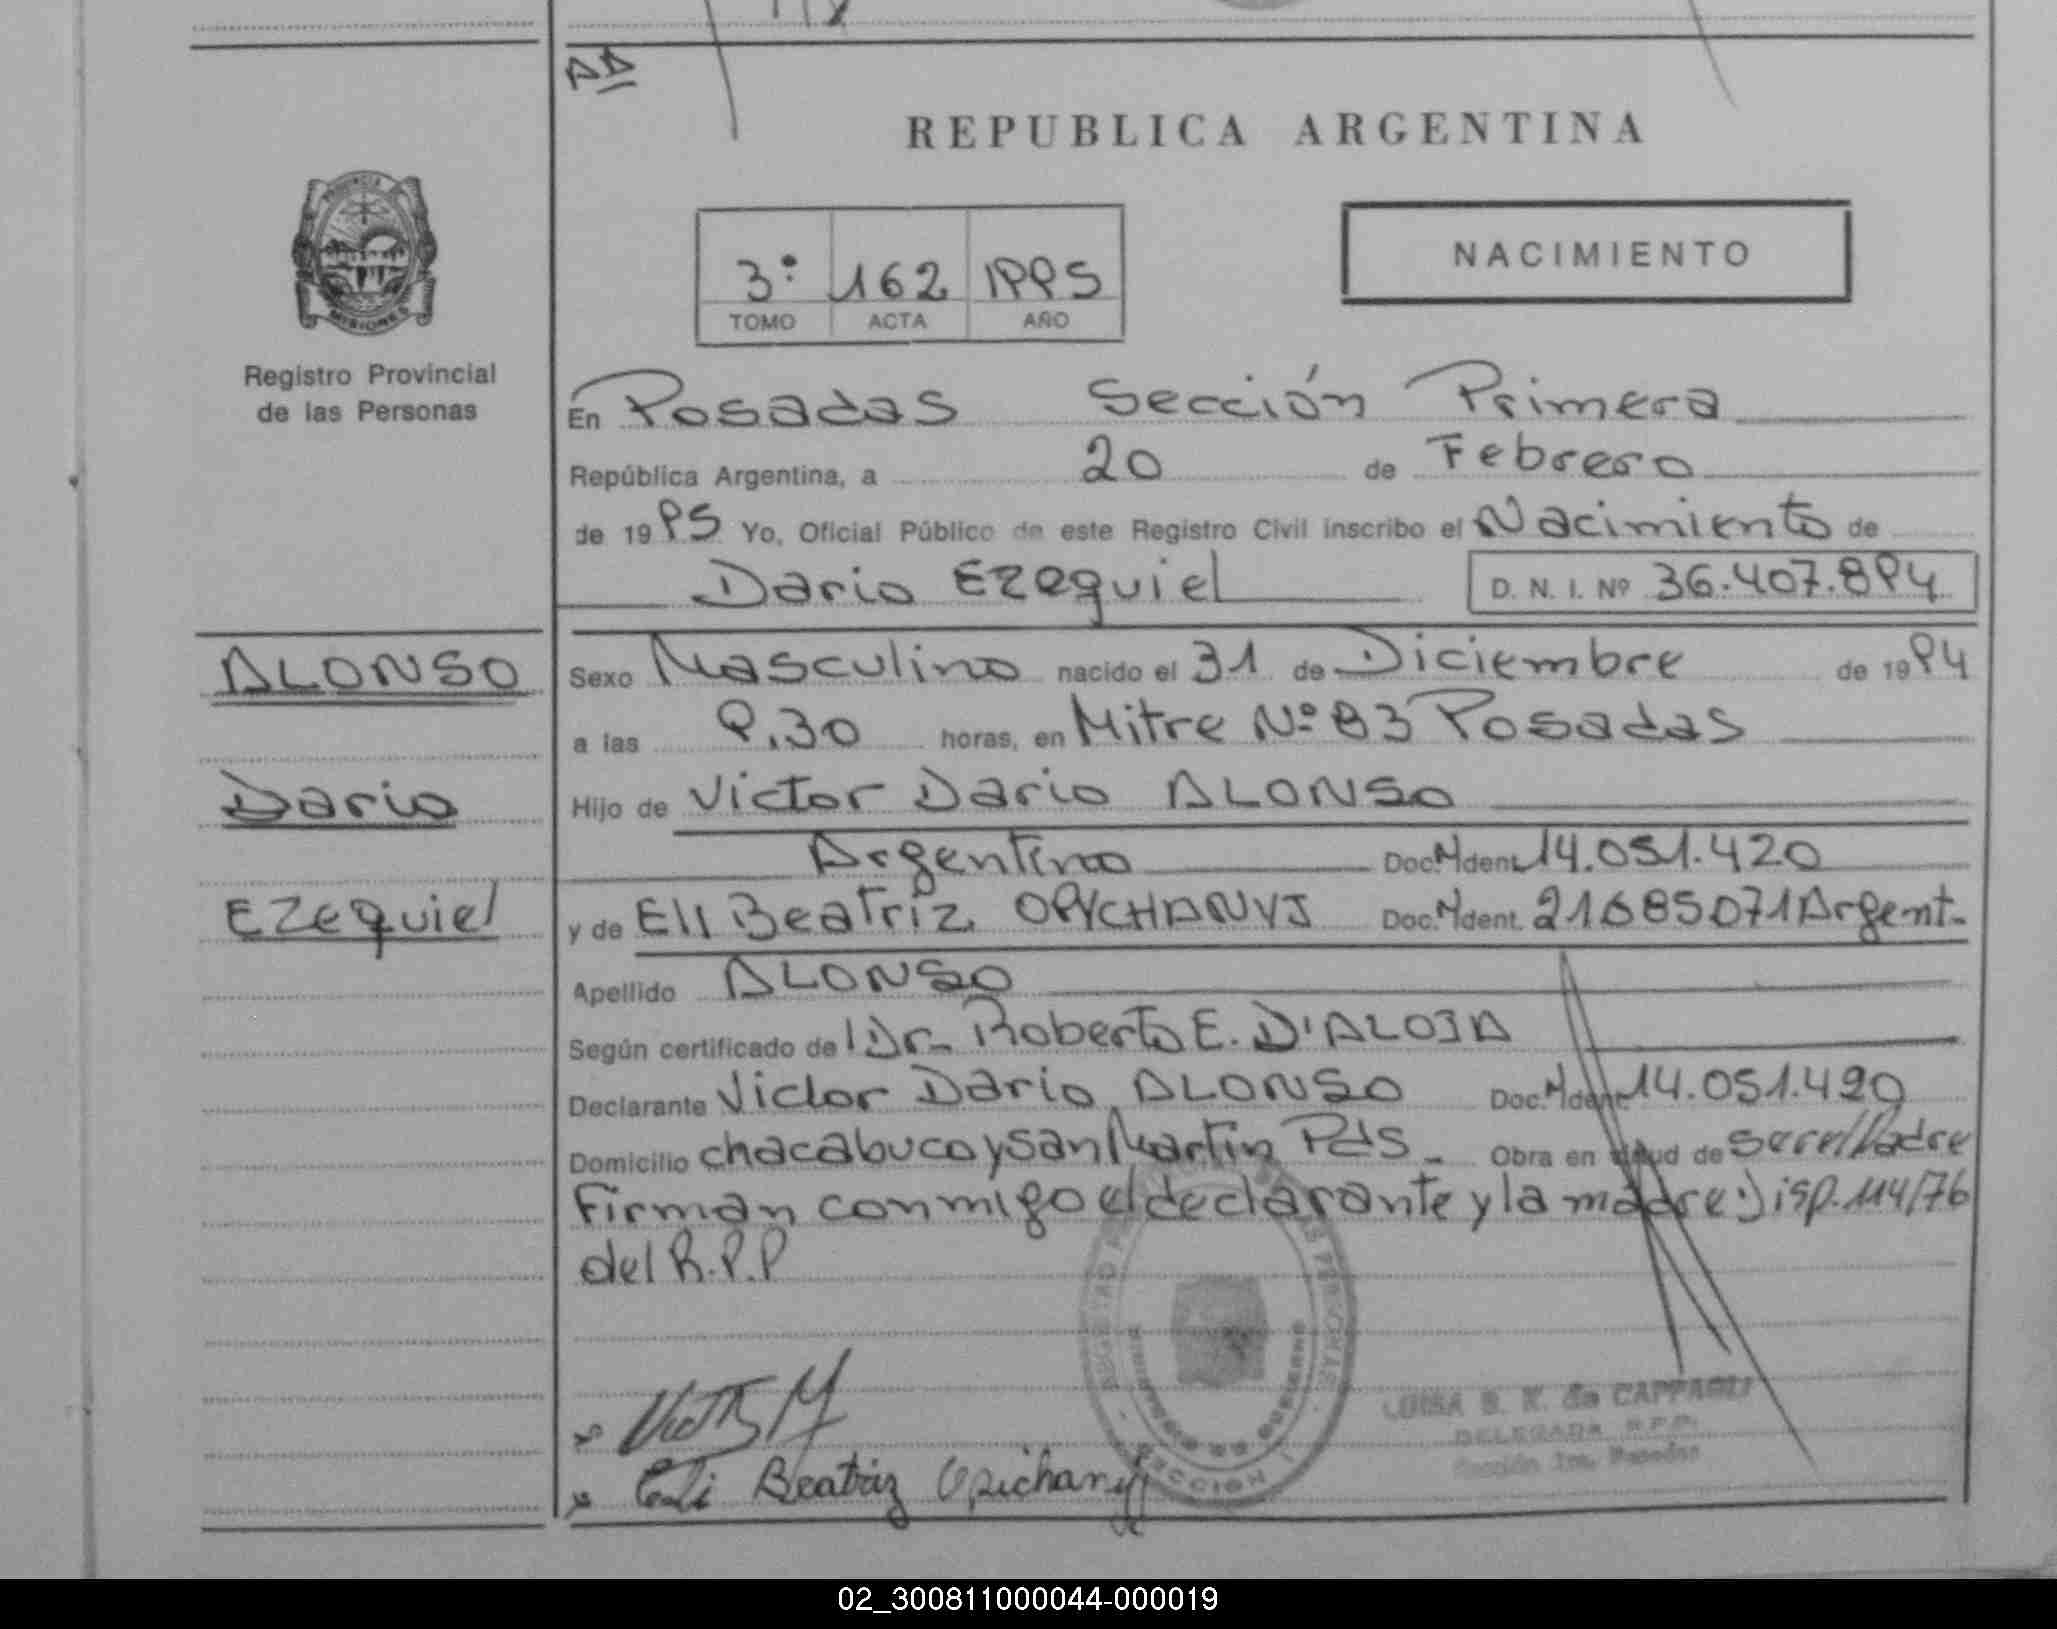 AA
REPUBLICA ARGENTINA
PROVINCIA
MISIONES
Registro Provincial
de las Personas
3º 162 1995
TOMO ACTA AÑO
NACIMIENTO
En Posadas Sección Primera
República Argentina, a 20 de Febrero
de 1995 Yo, Oficial Público de este Registro Civil inscribo el Nacimiento de
Dario Ezequiel D. N. I. Nº 36.407.894
ALONSO
Dario
Ezequiel
Sexo Masculino nacido el 31 de Diciembre de 1994
a las 9.30 horas, en Mitre Nº 83 Posadas
Hijo de Victor Dario ALONSO
Argentino Doc. Ident. 14.051.420
y de Eli Beatriz OPYCHANYJ Doc. Ident. 21685071 Argent.
Apellido ALONSO
Según certificado del Dr. Roberto E. D'ALOIA
Declarante Victor Dario ALONSO Doc. Ident. 14.051.420
Domicilio chacabuco y san Martin Pds. Obra en virtud de ser el Padre
Firman conmigo el declarante y la madre: Disp. 114/76
del R.P.P
Eli Beatriz Opichanyj
SECCION 1
LUISA S. K. de CAPPAGLI
DELEGADA R.P.P.
Sección 1ra. Posadas
02_300811000044-000019